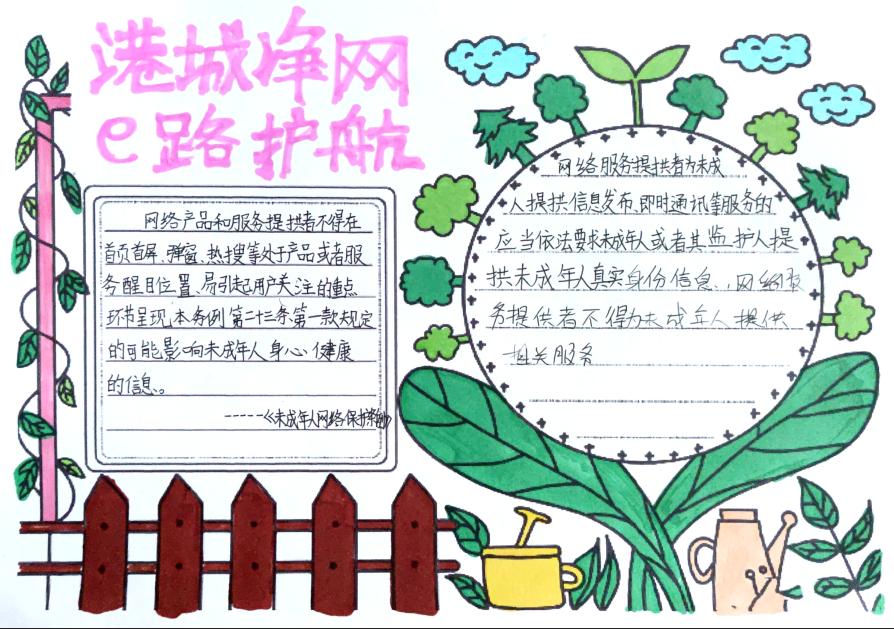 港城净网
e路护航
网络产品和服务提供者不得在
首页首屏、弹窗、热搜等处于产品或者服
务醒目位置、易引起用户关注的重点
环节呈现本条例第二十三条第一款规定
的可能影响未成年人身心健康
的信息。
-----《未成年人网络保护条例》
网络服务提供者为未成
人提供信息发布、即时通讯等服务的
应当依法要求未成年人或者其监护人提
供未成年人真实身份信息、网络服
务提供者不得为未成年人提供
相关服务